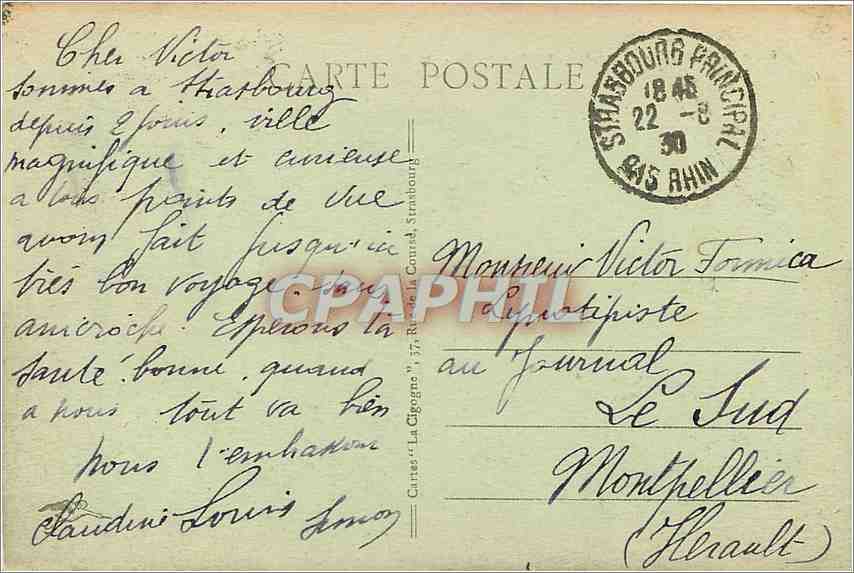 CARTE POSTALE
STRASBOURG PRINCIPAL
18 45
22 - 8
30
BAS RHIN
Cher Victor
sommes a Strasbourg
depuis 2 jours, ville
magnifique et curieuse
a tous points de vue
avons fait jusqu'ici
très bon voyage. sans
anicroche. Esperons ta
santé bonne, quand
a nous tout va bien
nous t'embrassons
Claudine Louis Simon
Cartes "La Cigogne", 37, Rue de la Course, Strasbourg
Monsieur Victor Formica
Lynotipiste
au Journal
Le Sud
Montpellier
(Herault)
CPAPHIL